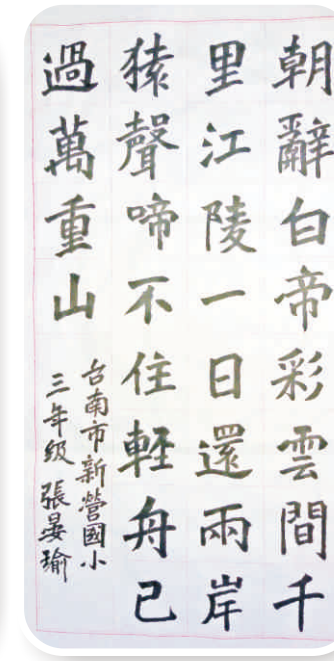 朝辭白帝彩雲間千
里江陵一日還兩岸
猿聲啼不住輕舟已
過萬重山
台南市新營國小
三年級 張晏瑜